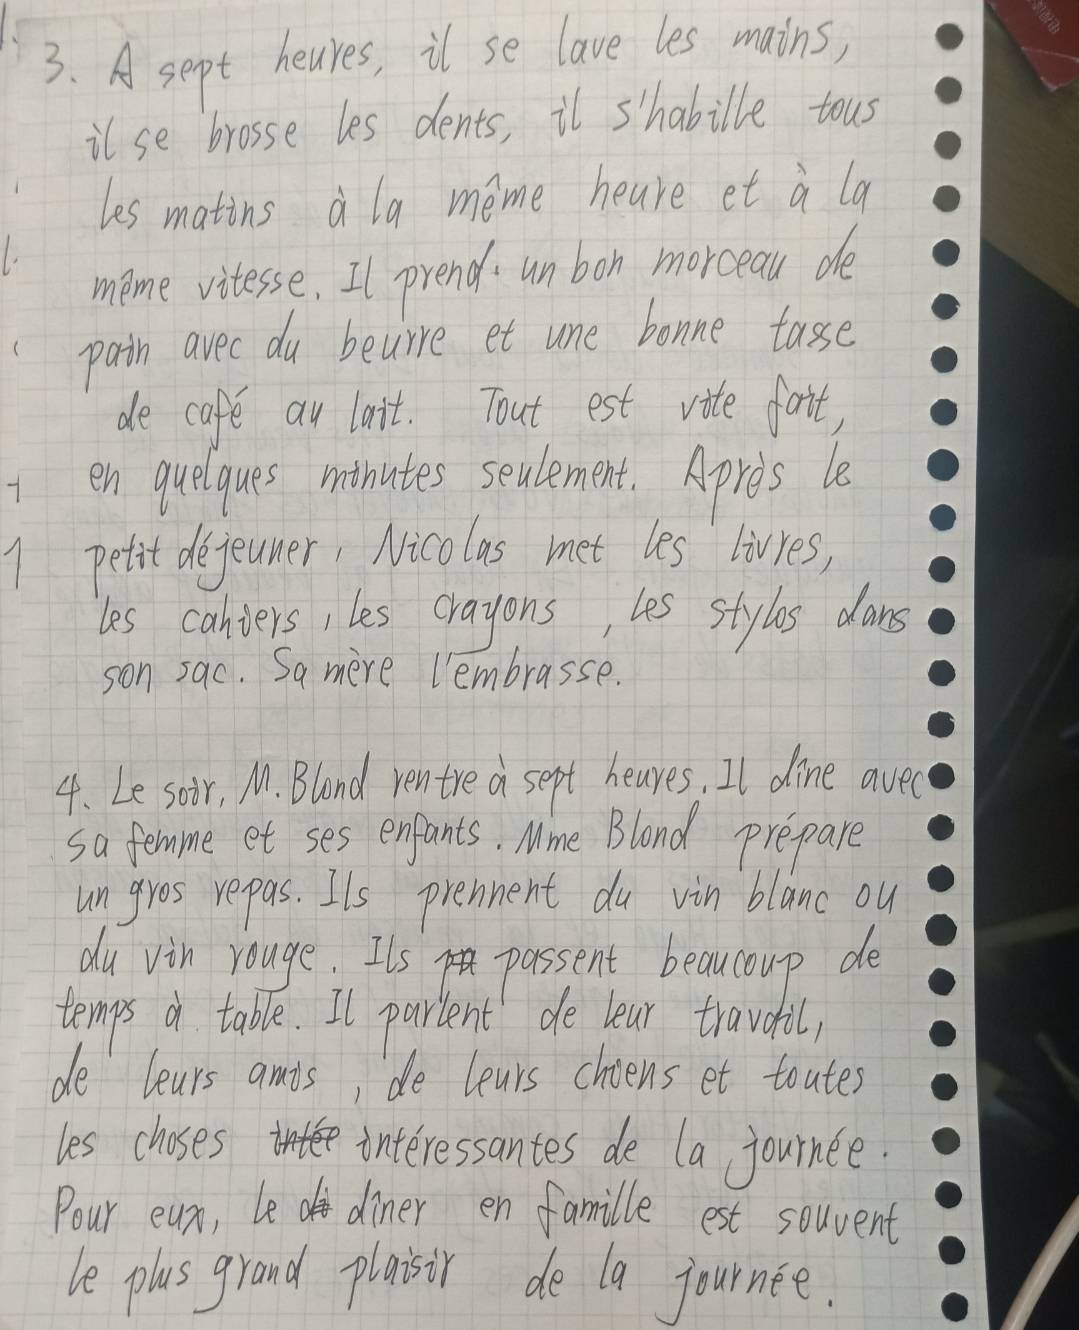 3. A sept heures, il se lave les mains,
il se brosse les dents, il s'habille tous
les matins à la même heure et à la
même vitesse. Il prend un bon morceau de
pain avec du beurre et une bonne tasse
de café au lait. Tout est vite fait,
en quelques minutes seulement. Après le
petit déjeuner, Nicolas met les livres,
les cahiers, les crayons, les stylos dans
son sac. Sa mère l'embrasse.
4. Le soir, M. Blond rentre à sept heures. Il dîne avec
sa femme et ses enfants. Mme Blond prépare
un gros repas. Ils prennent du vin blanc ou
du vin rouge. Ils passent beaucoup de
temps à table. Il parlent de leur travail,
de leurs amis, de leurs chiens et toutes
les choses intéressantes de la journée.
Pour eux, le dîner en famille est souvent
le plus grand plaisir de la journée.